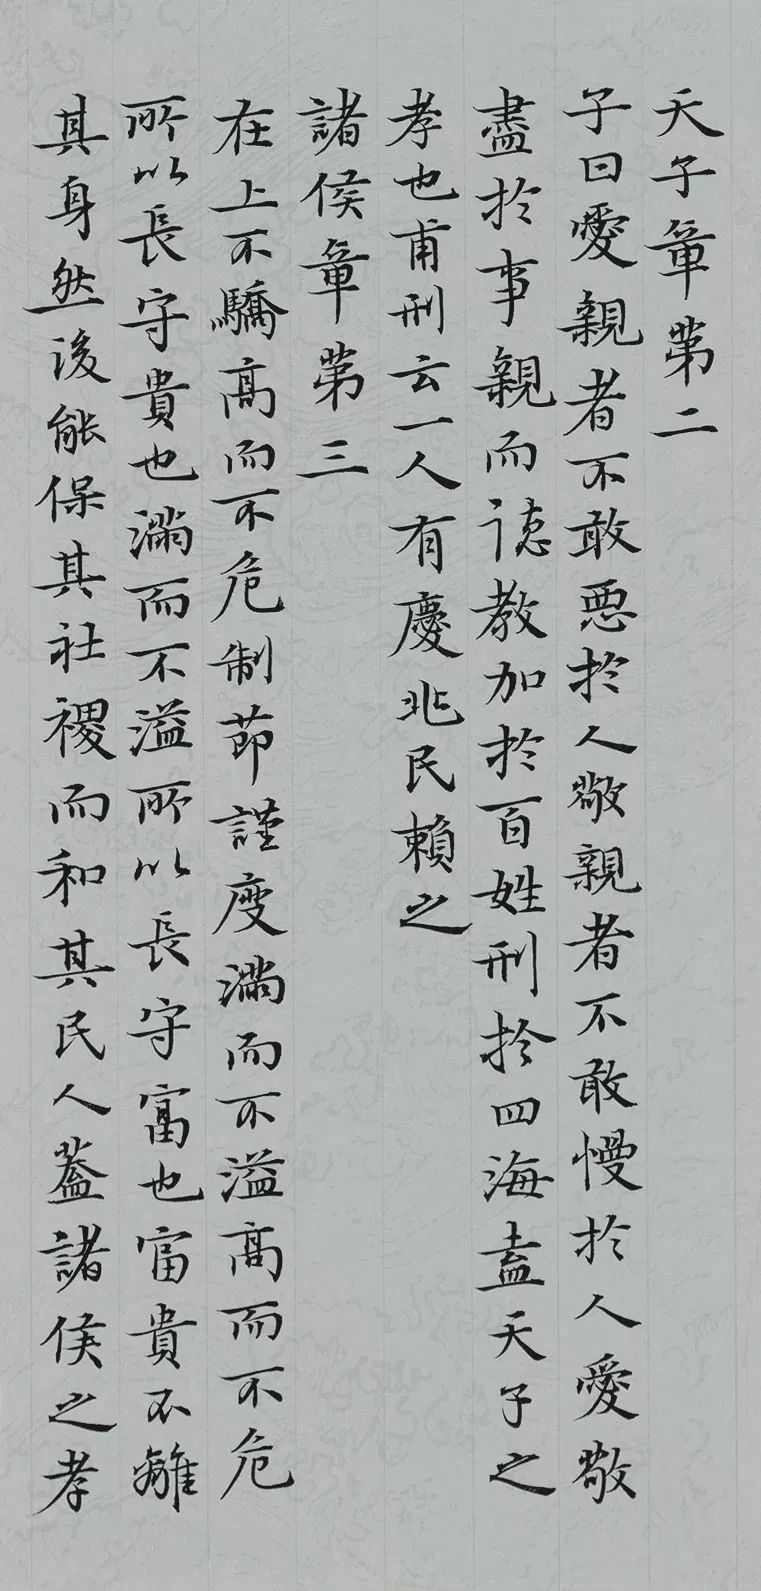 天子章第二
子曰愛親者不敢惡於人敬親者不敢慢於人愛敬
盡於事親而德教加於百姓刑於四海盖天子之
孝也甫刑云一人有慶兆民賴之
諸侯章第三
在上不驕高而不危制節謹度滿而不溢高而不危
所以長守貴也滿而不溢所以長守富也富貴不離
其身然後能保其社稷而和其民人蓋諸侯之孝